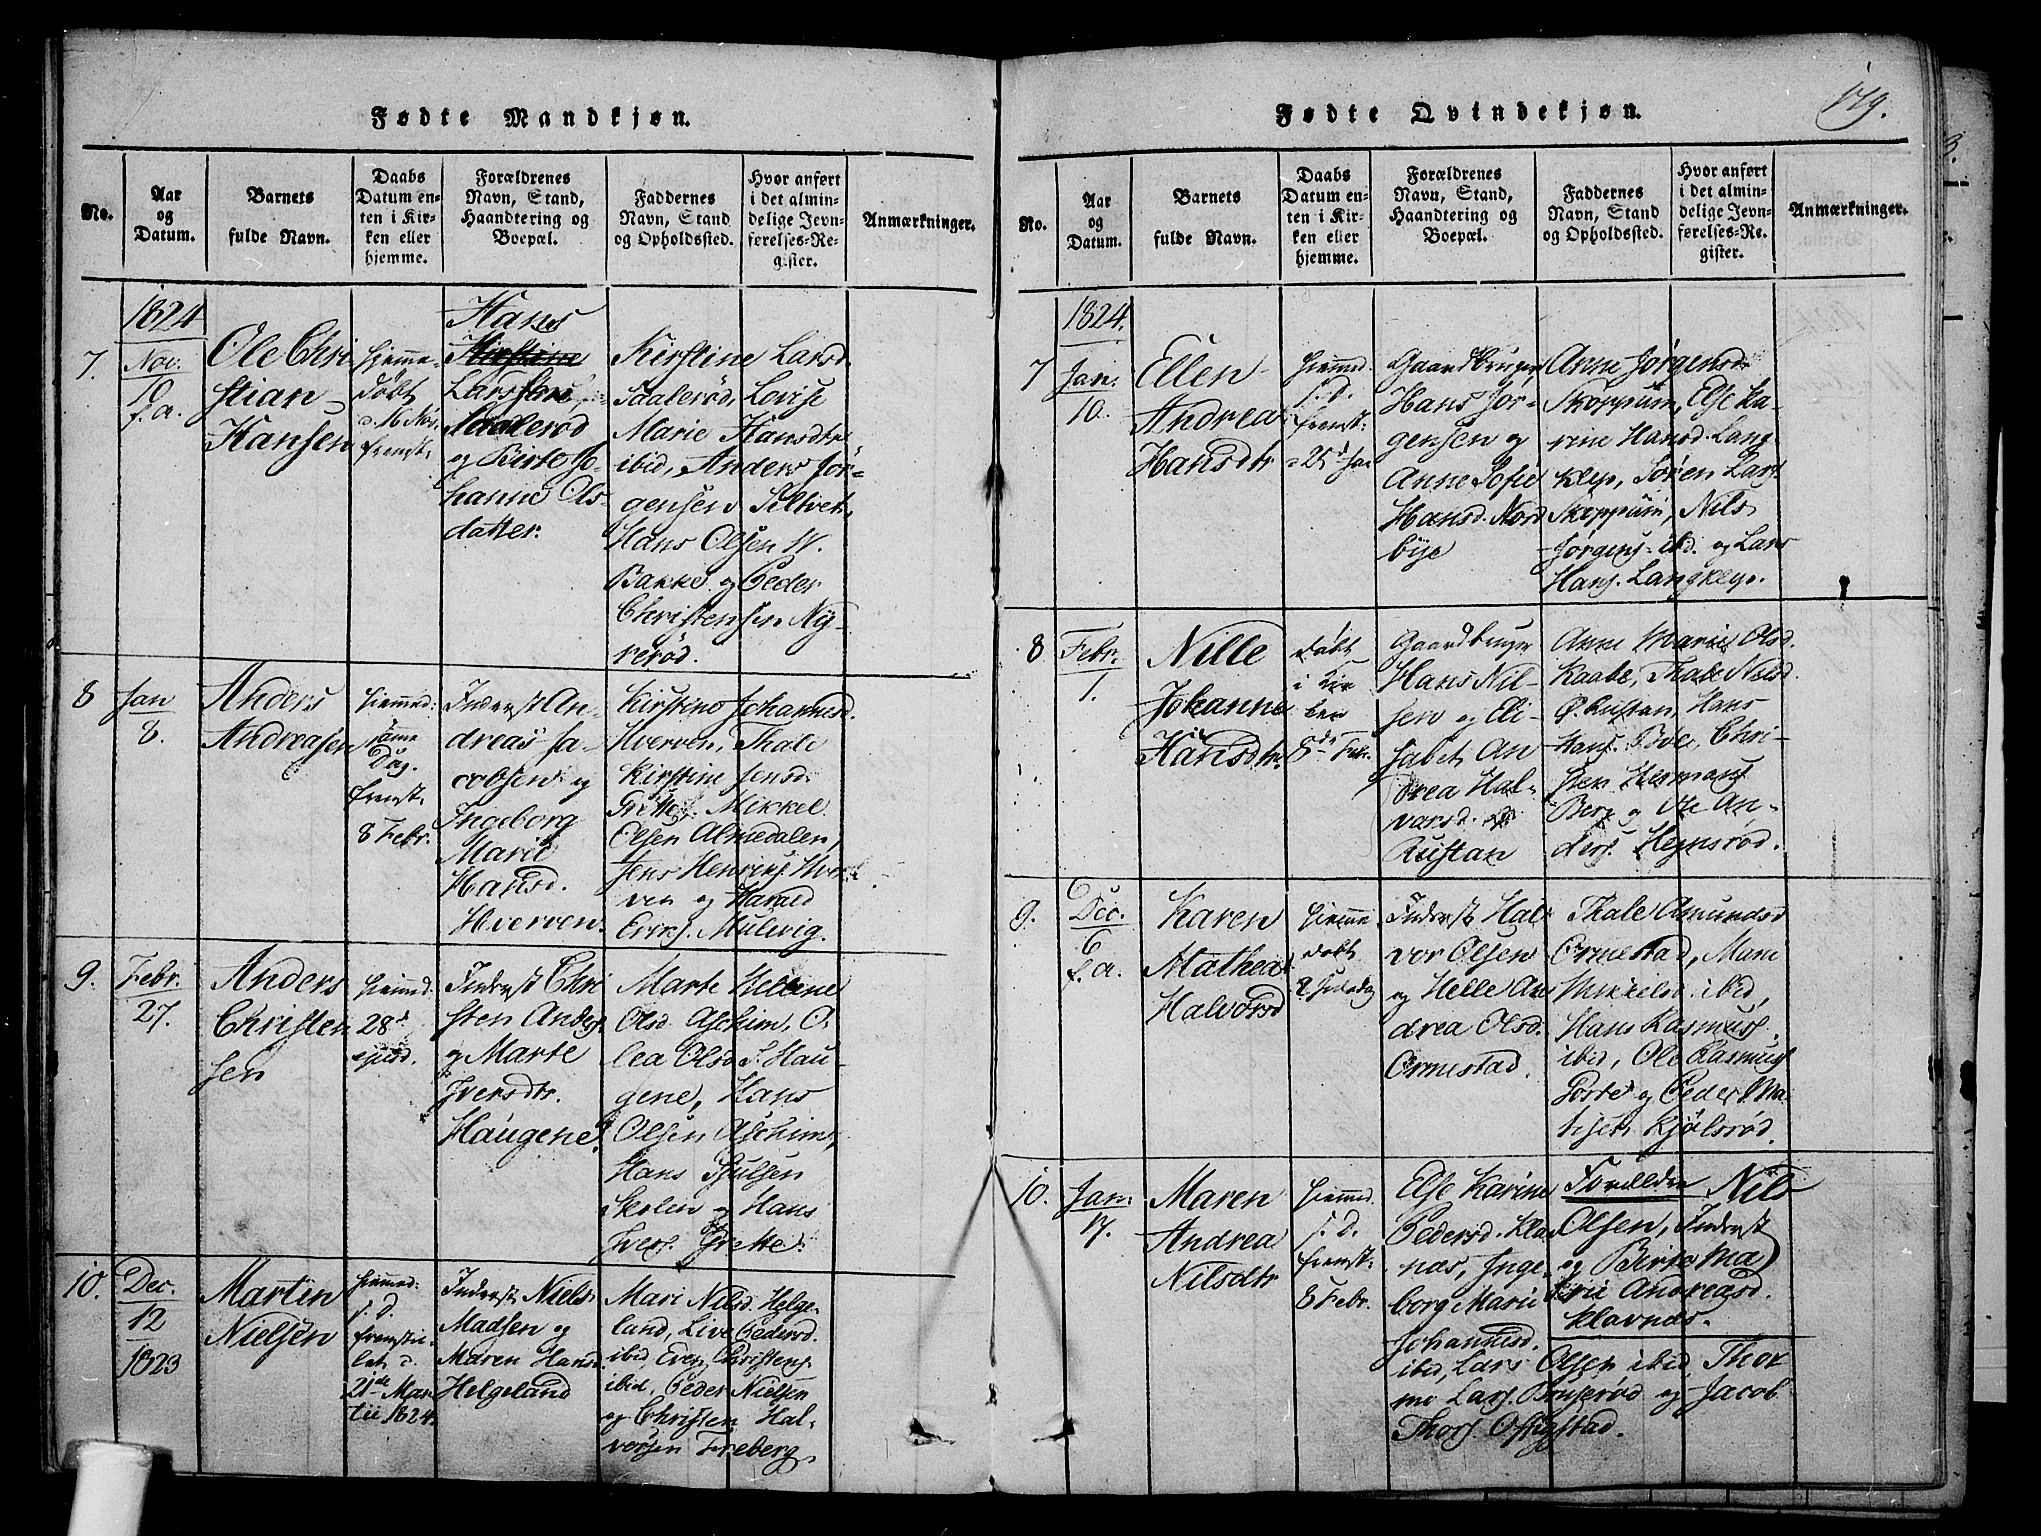 179.
Fødte Mandkjøn.
No.
Aar
og
Datum.
Barnets
fulde Navn.
Daabs
Datum en-
ten i Kir-
ken eller
hjemme.
Forældrenes
Navn, Stand,
Haandtering og
Boepæl.
Faddernes
Navn, Stand
og Opholdssted.
Hvor anført
i det almin-
delige Jevn-
førelses-Re-
gister.
Anmærkninger.
1824
7.
Nov.
10
f. a.
Ole Chri
stian
Hansen
hjemme-
døbt
fremst.
Hans
Kirstine
Larssen
Saalerød
og Birte Jo-
hanne Ols-
datter.
Kirstine Larsd.
Saalerød, Lovise
Marie Hansdtr
ibid, Anders Jör-
gensen Siltvet,
Hans Olsen N.
Bakke og Peder
Christensen Ny-
rerød.
8
Jan
8.
Anders
Andreasen
hiemmed:
samme
Dag.
fremst.
8 Febr.
Inderst An-
dreas Ja-
cobsen og
Ingeborg
Marie
Hansd.
Hverven.
Kirstine Johannesd.
Hverven, Thale
Kirstine Jensd.
Grette, Mikkel
Olsen Almedalen,
Jens Henriks. Hver-
ven og Harald
Eriks. Mulvig.
9.
Febr.
27.
Anders
Christen
sen
hiemmed.
28d
ejusd.
Inderst Chri
sten Anders.
og Marte
Iversdtr.
Haugene.
Marte Hellene
Olsd. Aschim, O-
lea Olsd. S. Hau-
gene, Hans
Olsen Aschim,
Hans Paulsen
Skolen og Hans
Ivers. Grette.
10.
Dec.
12
1823
Martin
Nielsen
hiemmed:
s. D.
fremstil-
let d.
21de Mar-
tii 1824.
Inderst Niels
Madsen og
Maren Hansd.
Helgeland
Mari Nilsd. Helge-
land, Live Pedersd.
ibid. Even Christens.
ibid. Peder Nielsen
og Christen Hal-
vorsen Freberg.
Fødte Qvindekjøn.
No.
Aar
og
Datum.
Barnets
fulde Navn.
Daabs
Datum en-
ten i Kir-
ken eller
hjemme.
Forældrenes
Navn, Stand,
Haandtering og
Boepæl.
Faddernes
Navn, Stand
og Opholdssted.
Hvor anført
i det almin-
delige Jevn-
førelses-Re-
gister.
Anmærkninger.
1824.
7
Jan.
10.
Ellen
Andrea
Hansdtr
hiemmed
s. D.
fremst.
d 25d Jan
Gaardbruger
Hans Jör-
gensen og
Anne Sofie
Hansd. Nord
bye
Anne Jørgensd.
Skoppum, Else Ka-
rine Hansd. Lang-
klep, Sören Lars.
Skoppum, Nils
Jørgens. ibd. og Lars
Hans. Langklep.
8
Febr.
1.
Nille
Johanne
Hansdtr.
døbt
i Kir
ken
8de Febr.
Gaardbruger
Hans Nil-
sen og Eli-
sabet An
drea Hal-
varsd.
Rustan
Anne Marie Olsd.
Thale Nilsd.
Ø. Rustan, Hans
Hans. Bøe, Chri-
sten Hermans.
Berg og Ole An-
ders. Hejmsrød.
9.
Dec.
6
f. a.
Karen
Mathea
Halvorsd
hiemme
døbt
2 Juledag
Inderst Hal-
vor Olsen
og Helle An
drea Olsd.
Ormestad.
Thale Amundsd
Ormestad, Maren
Mikkelsd. ibid,
Hans Rasmus.
ibid, Ole Rasmus.
Borre og Peder Ma-
thisen Kjölsrød.
10.
Jan.
17.
Maren
Andrea
Nilsdtr
hiemmed.
s. D.
fremst.
8 Febr.
Else Karine
Pedersd. Klav
nes, Inge-
borg Marie
Johannesd.
ibid, Lars Olsen ibid, Thor
mo Lars. Bruserød og Jacob
Thors. Oftystad.
Forældre Nils
Olsen, Inderst
og Birte Ma
rie Andreasd.
Klavnes.